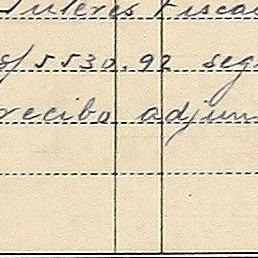 Interés Fiscal
s/ 5530.92 seg
recibo adjun